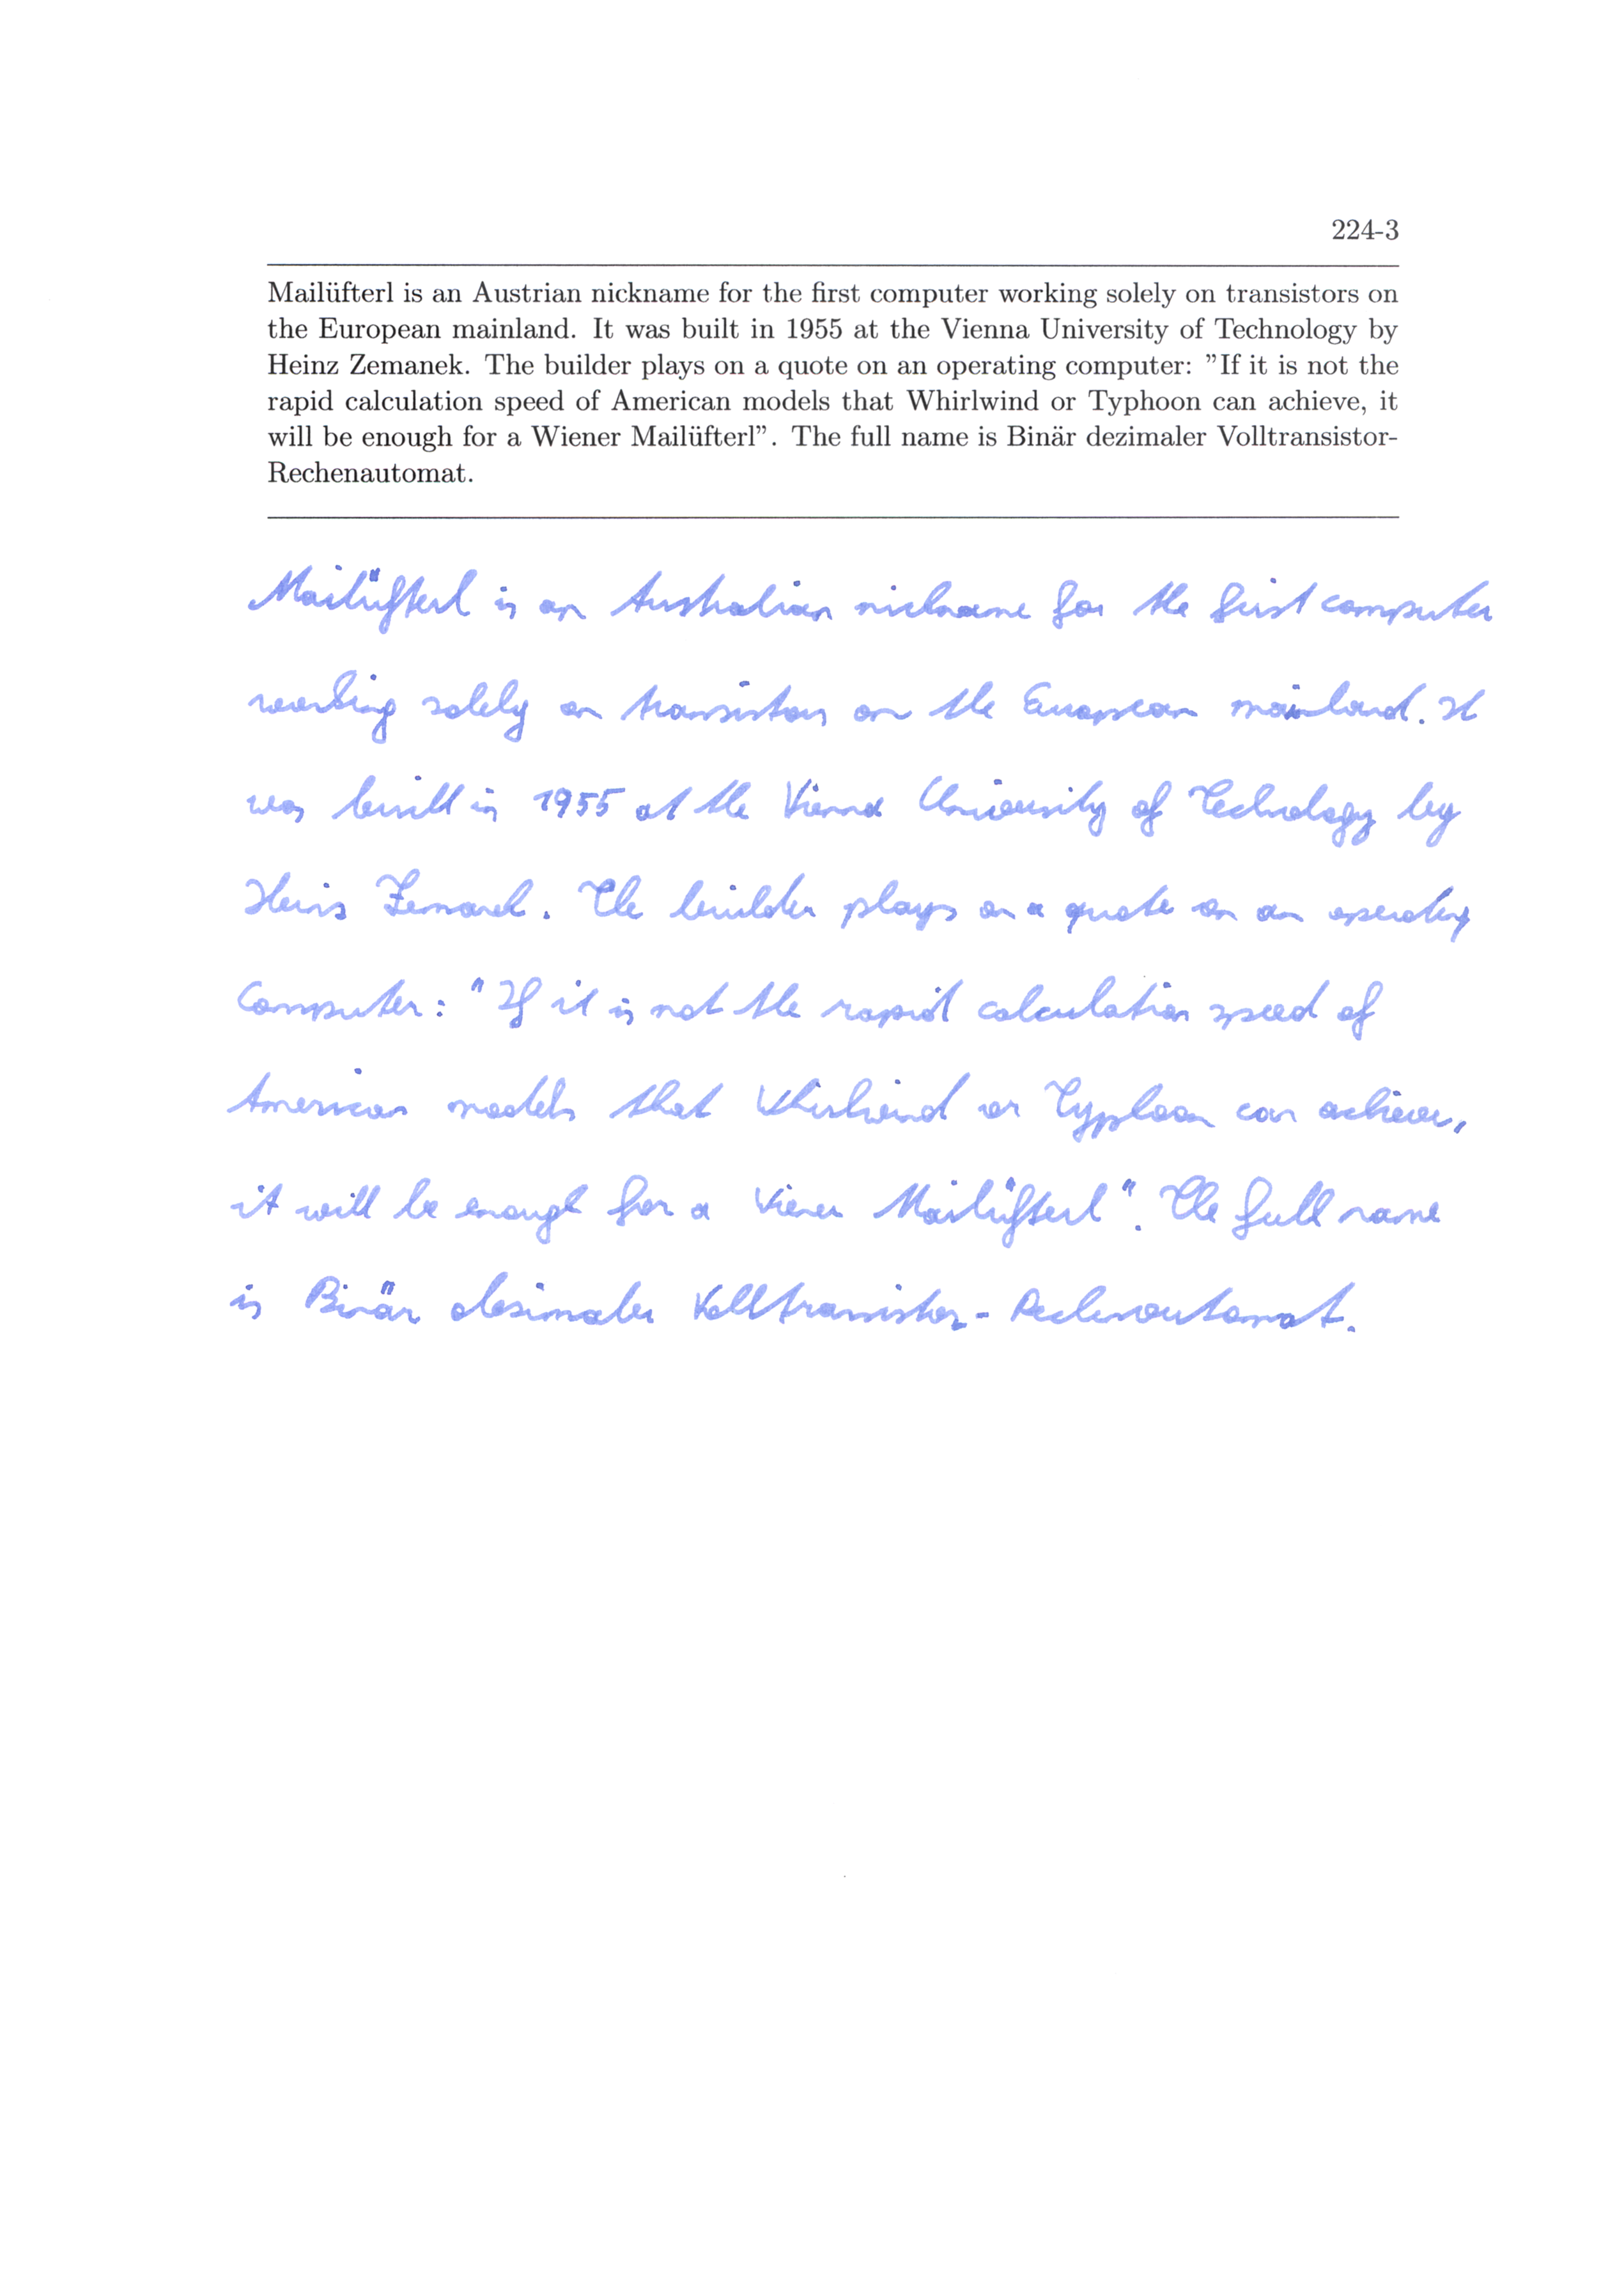 224-3
Mailüfterl is an Austrian nickname for the first computer working solely on transistors on
the European mainland. It was built in 1955 at the Vienna University of Technology by
Heinz Zemanek. The builder plays on a quote on an operating computer: ”If it is not the
rapid calculation speed of American models that Whirlwind or Typhoon can achieve, it
will be enough for a Wiener Mailüfterl”. The full name is Binär dezimaler Volltransistor-
Rechenautomat.
Mailüfterl is an Australian nickname for the first computer
working solely on transistors on the European mainland. It
was built in 1955 at the Vienna University of Technology by
Heinz Zemanek. The builder plays on a quote on an operating
Computer: "If it is not the rapid calculation speed of
American models that Whirlwind or Typhoon can achieve,
it will be enough for a Wiener Mailüfterl". The full name
is Binär dezimaler Volltransistor-Rechenautomat.